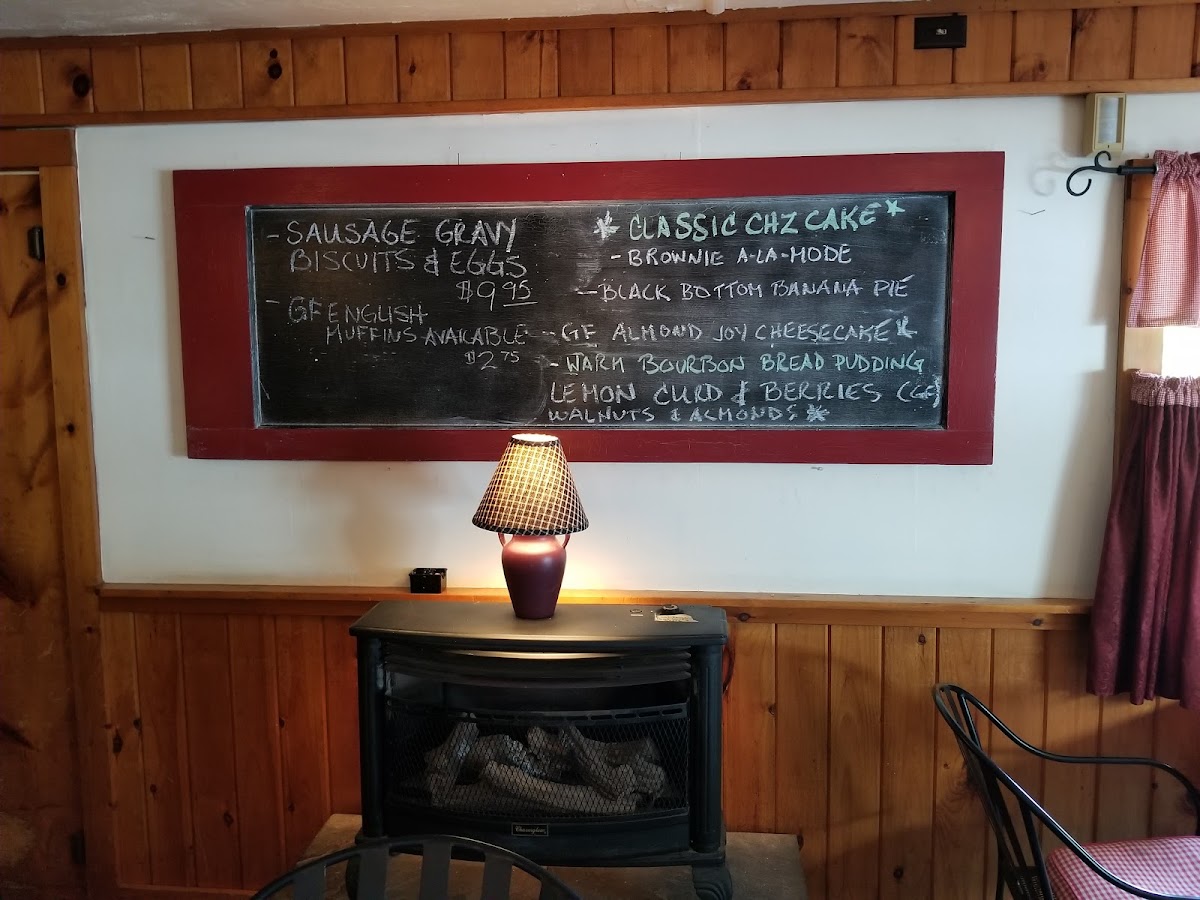 - SAUSAGE GRAVY
BISCUITS & EGGS
$9.95
- GF ENGLISH
MUFFINS AVAILABLE
$2.75
* CLASSIC CHZ CAKE *
- BROWNIE A-LA-MODE
- BLACK BOTTOM BANANA PIE
- GF ALMOND JOY CHEESECAKE *
- WARM BOURBON BREAD PUDDING
LEMON CURD & BERRIES (GF)
WALNUTS & ALMONDS *